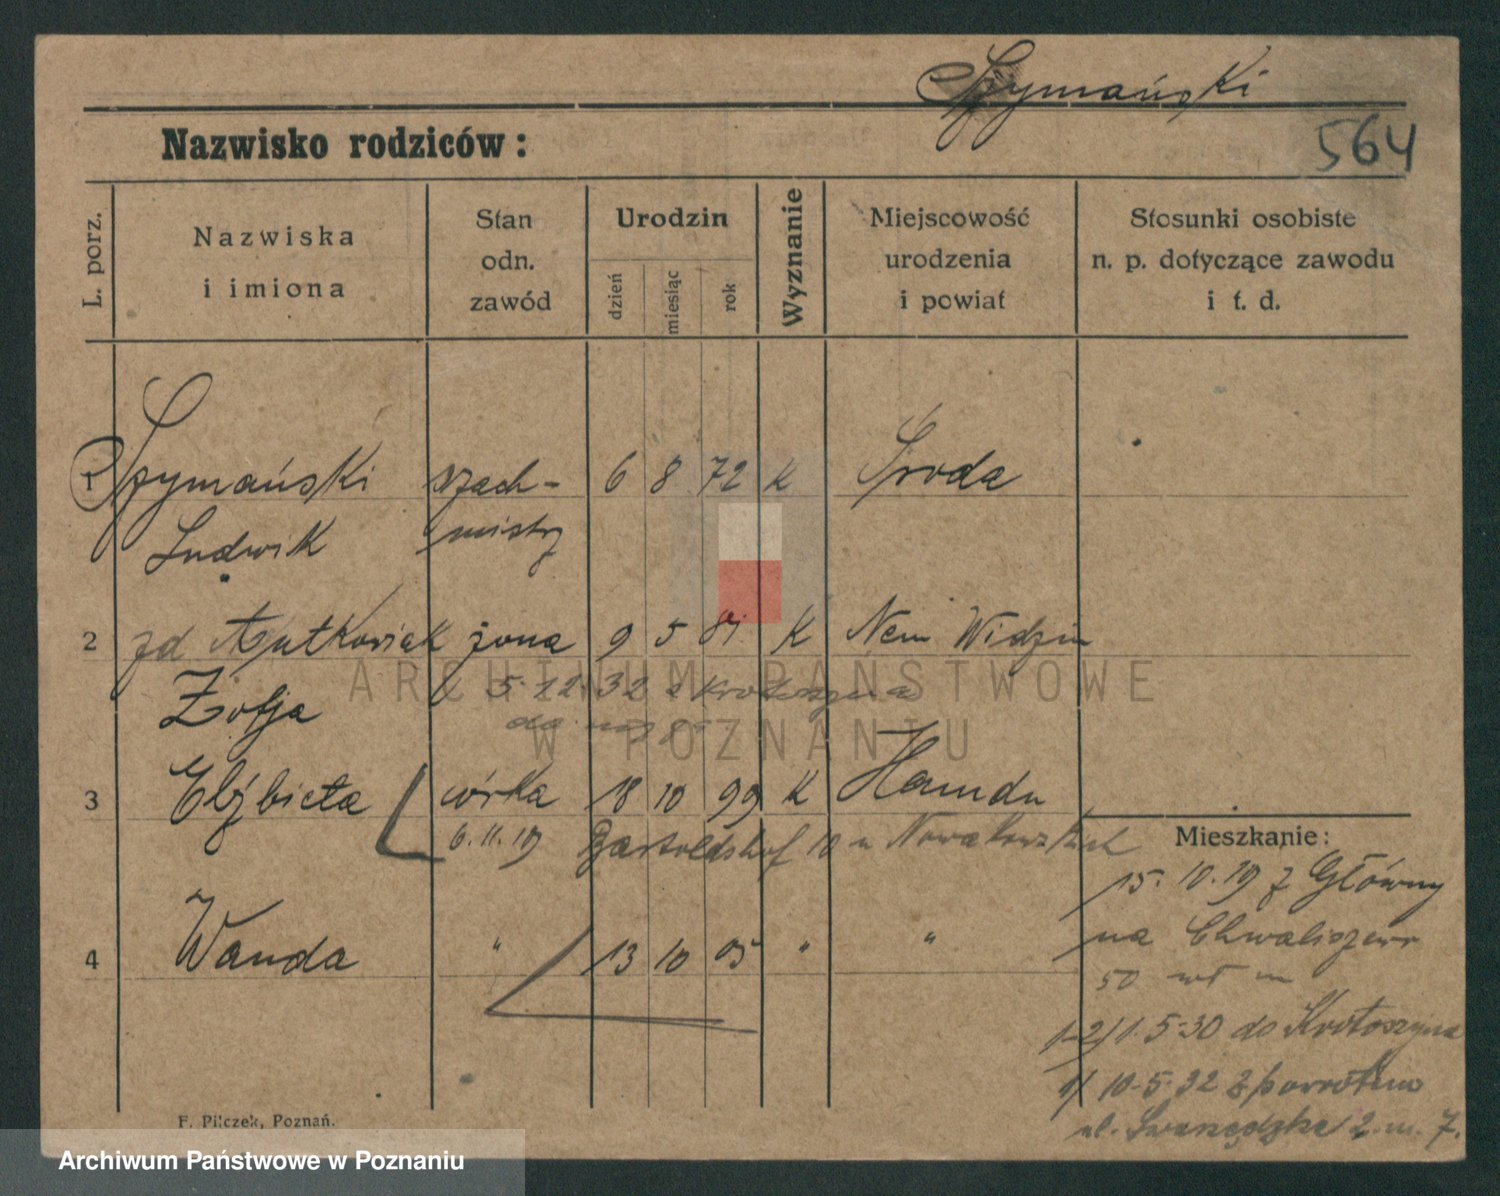 Szymański
Nazwisko rodziców:
564
L. porz.
Nazwiska
i imiona
Stan
odn.
zawód
Urodzin
dzień
miesiąc
rok
Wyznanie
Miejscowość
urodzenia
i powiat
Stosunki osobiste
n. p. dotyczące zawodu
i t. d.
1 Szymański szach- 6 8 72 K Sroda
Ludwik mistrz
2 zd żona 9 5 81 K
Zofja 5.12.32 z Krotoszyna
do
3 Elżbieta córka 18 10 99 K
6.11.19 Bartoldshof 10 u Nowakowskich
4 Wanda " 13 10 05 " "
Mieszkanie:
15.10.19 z Główny
na Chwaliszewo
50
1-2/ 1.5.30 do Krotoszyna
1/ 10.5.32 z powrotem
ul. 2. m. 7.
F. Pilczek, Poznań.
ARCHIWUM PAŃSTWOWE
W POZNANIU
Archiwum Państwowe w Poznaniu